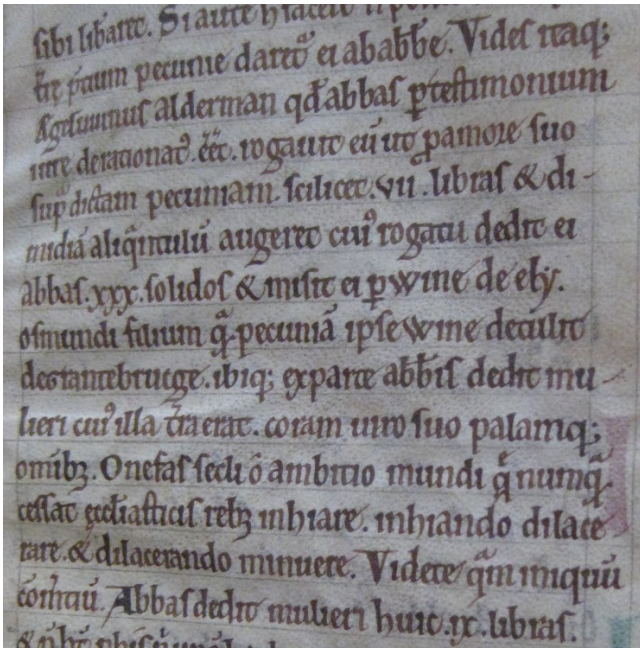 sibi liƀaret. Si aute hiacere
t̄rę p̄cium pecunie daretᷣ ei ab abƀe. Vides itaq;
Ægeluuinus alderman qđ abbas ꝑ testimonium
iure derationat᷒. eēt. rogauit eū ut ꝓ amore suo
sup͛dictam pecuniam. scilicet .vii. libras & di-
midiā aliq̄ntulū augeret cui᷒ rogatu dedit ei
abbas .xxx. solidos & misit ei ꝑ wine de ely.
osmundi filium q̄ᷓ. pecuniā ipse wine detulit
de grantebrucge. ibiq; ex parte abƀis dedit mu-
lieri cui᷒ illa t̄ra erat. coram uiro suo palamq;
omibꝫ. O nefas sedi ō ambitio mundi q̄ numq̄ᷓ
cessat ęccliasticis rebꝫ inhiare. inhiando dilace-
rare. & dilacerando minuere. Videte qᷓm iniquū
com̄tiū. Abbas dedit mulieri huic .ix. libras.